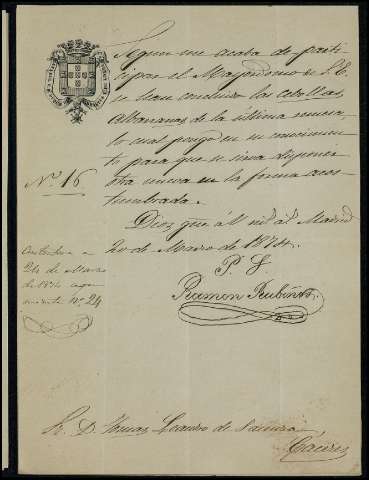 Segun me acaba de parti-
cipar el Mayordomo de S. E.
se han concluido las cebollas
Albarranas de la última remesa,
lo cual pongo en su conocimien-
to para que se sirva disponer
otra nueva en la forma acos-
tumbrada.
Dios gue á V. ms. as. Madrid
20 de Marzo de 1874.
P. S.
Ramon Rubiños
Nº. 16
Contestada en
24 de Marzo
de 1874
nº 24
S. D. Tomás Lizauro de
Cáceres